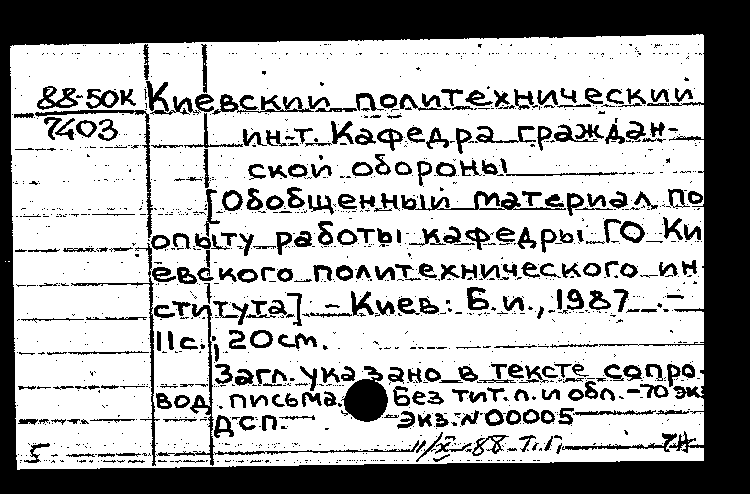 88-50К Киевский политехнический
7403 ин-т. Кафедра граждан-
ской обороны
[Обобщенный материал по
опыту работы кафедры ГО Ки
евского политехнического ин-
ститута] - Киев: Б.и., 1987 .-
11с.; 20см.
Загл. указано в тексте сопро-
вод. письма. Без тит.л. и обл.-70 экз
ДСП. Экз. N 00005
5 11/X-88 Т.Г.